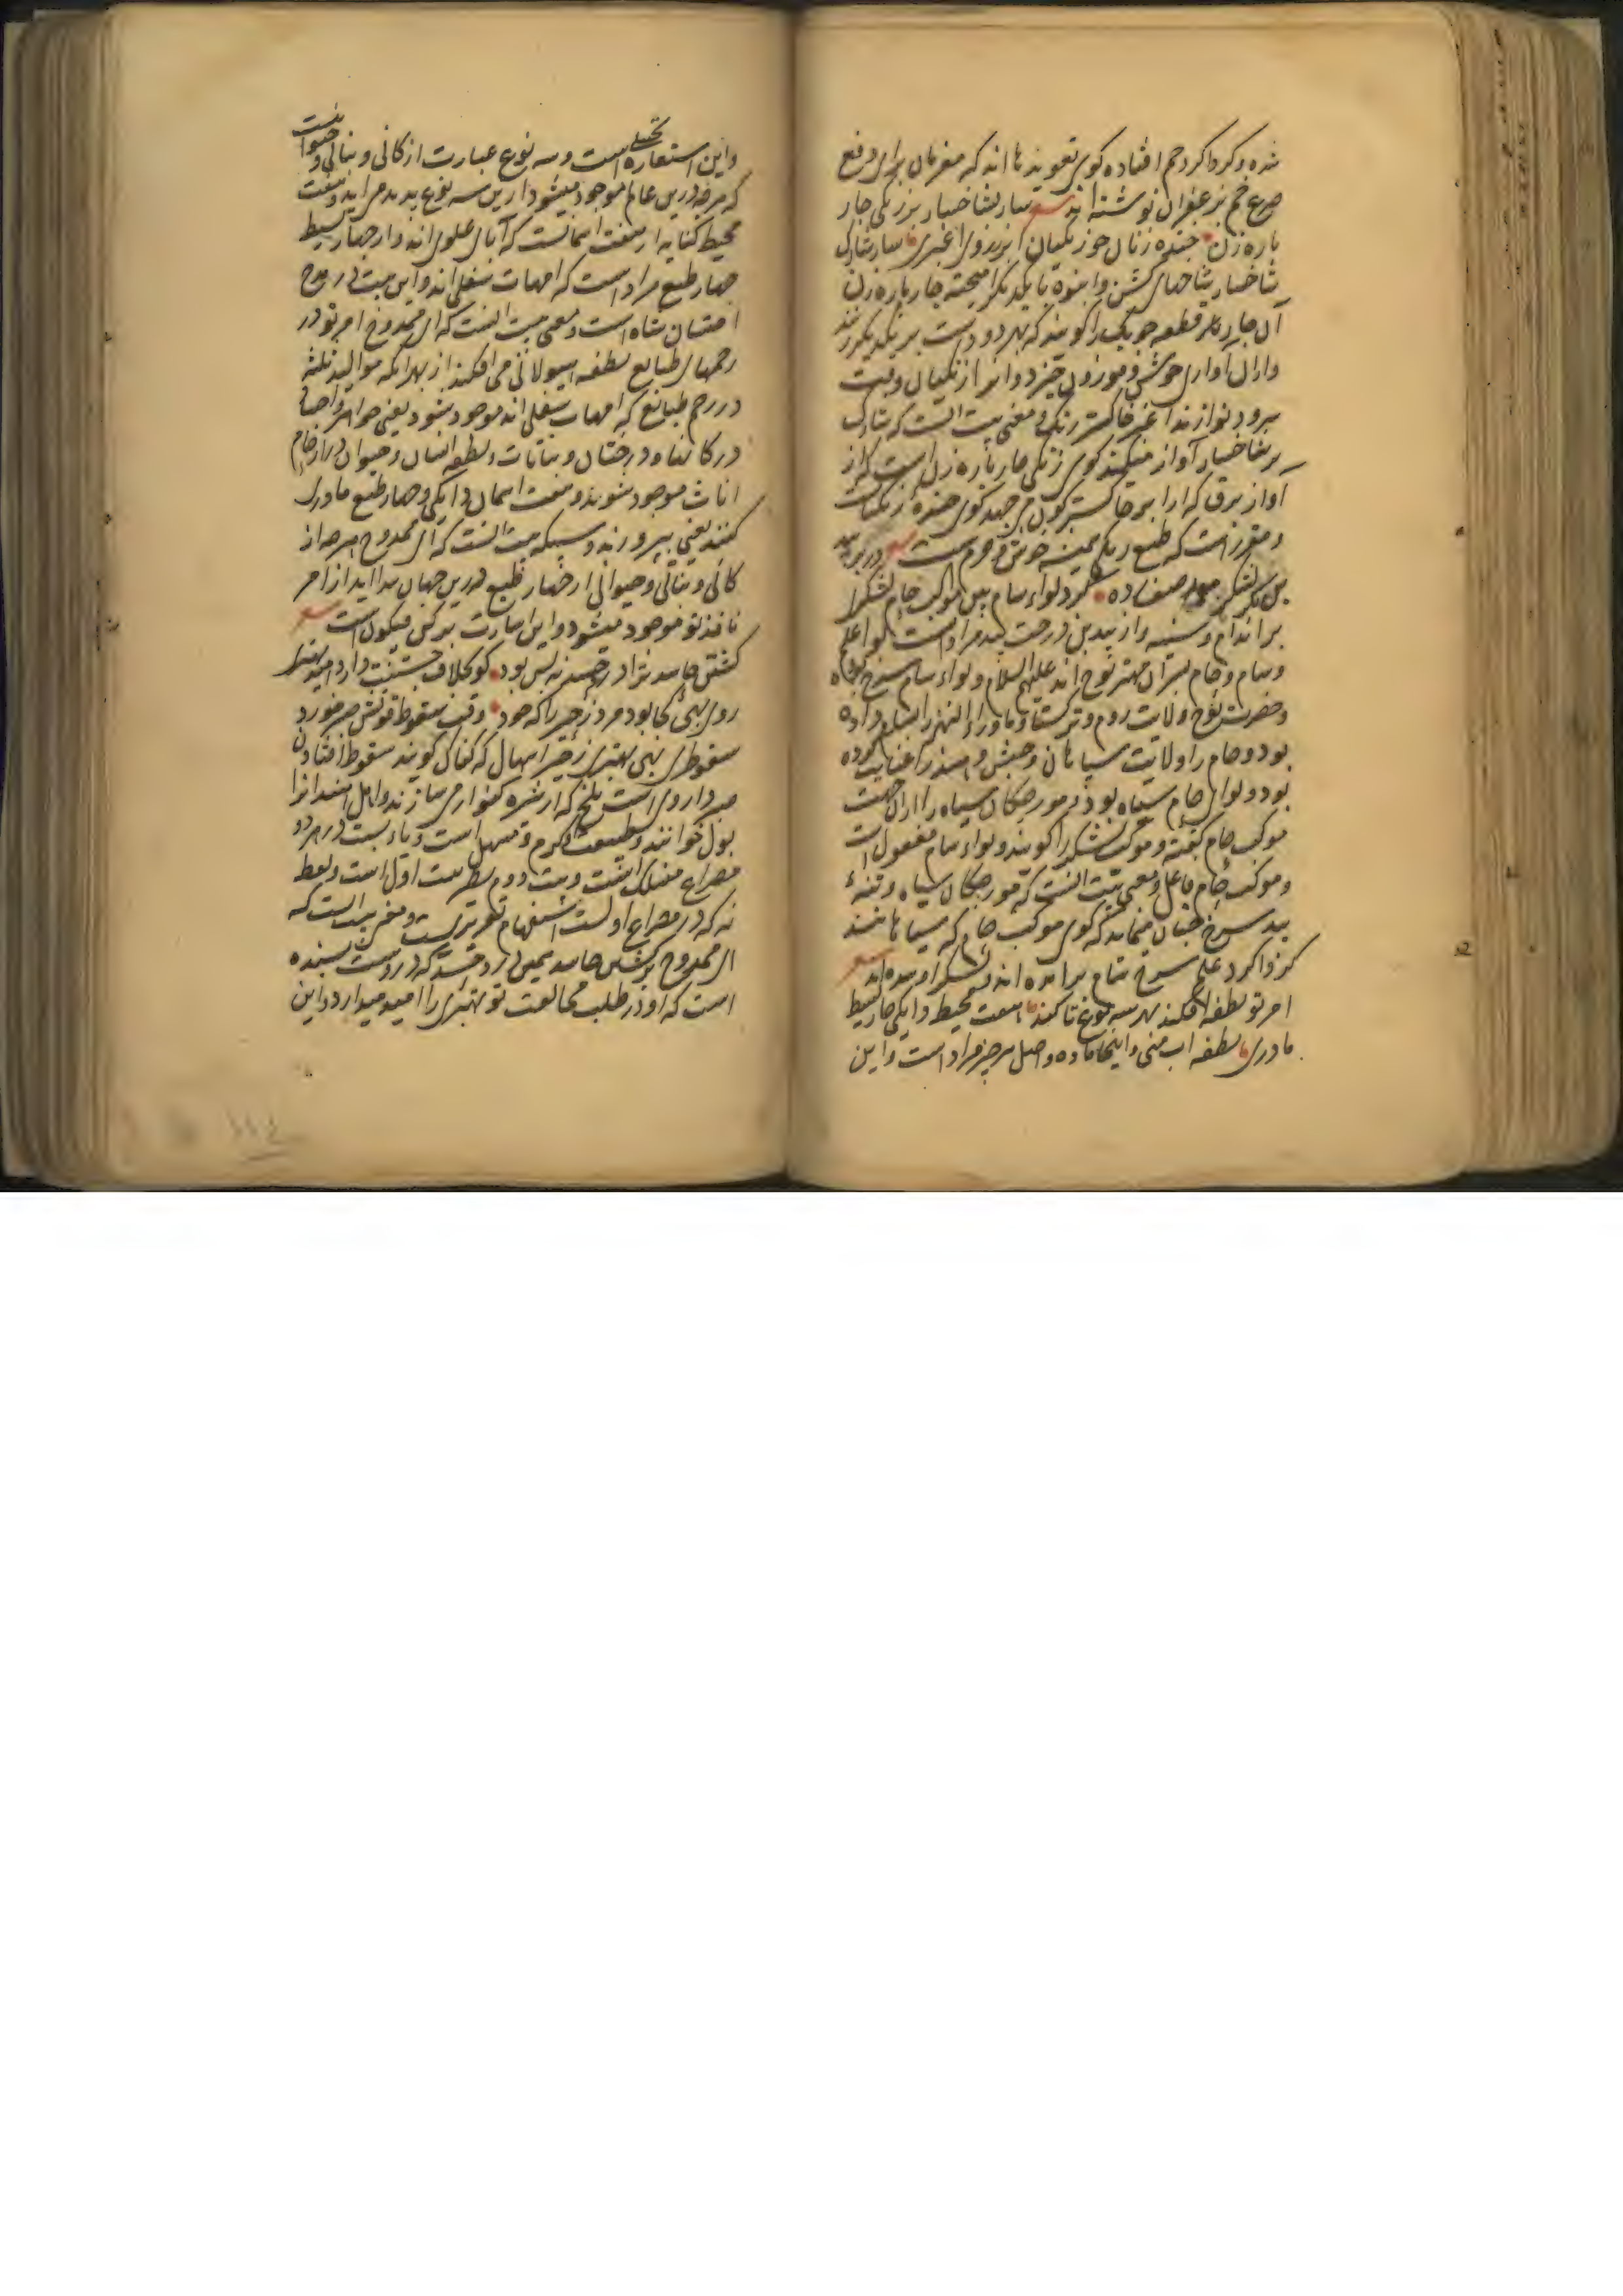 شده و کرداکرد خم افتاده کوی تعویذها اند که مغرمان برای دفع
صرع خم بزعفران نوشته اند شعر سار بشاخسار بر زنکی چار
باره زن خنده زنان چو زنکیان ابر بروی اغبری سار شارک
شاخسار شاخهای کشن و انبوه با یکدیکر امیخته چار باره زن
آن چار قطعه چوبک را کویند که بهر دو دست بر یکدیکر زنند
و ازان اوازی خوش و موزون خیزد و انرا زنکیان وقت
سرود نوازند اغبر خاکستر رنک و معنی بیت انست که شارک
بر شاخسار آواز میکند کوی زنکی چار باره زن است
آواز برق که از ابر خاکستر کون می جهد کوی خنده زنکیانست
و مقرر است که طبع زنکی همیشه خوش و خرم است شعر
پس لشکر صف زده کرد لواء سام بین موکب حام لشکری
براندام و سینه و از بید بن درخت بید مراد است لوا علم
و سام و حام پسران مهتر نوح اند علیهم السلام و لواء سام سرخ بود
و حضرت نوح ولایت روم و ترکستان و ماوراء النهر را بسام داده
بود و حام را ولایت سیاهان و حبش و هند را عنایت کرده
بود و لوای حام سیاه بود و مورچکان سیاه را ازان جهت
موکب حام کفته و موکب لشکر را کویند و لواء سام مفعول است
و موکب حام فاعل و معنی بیت انست که مورچکان سیاه و تنهء
بید سرخ چنان می‌ماند که کوی موکب حام که سیاهانند
کرداکرد علم سرخ سام برامده اند شعر
امر تو نطفه افکند بهر سه نوع تا کند هفت محیط دایکی چار بسیط
مادری نطفه اب منی و اینجا ماده و اصل هر چیز مراد است و این
و این استعارهٔ تخییلی است و سه نوع عبارت از کانی و نباتی و حیوانیست
که هرچه درین عالم موجود میشود ازین سه نوع پدید می اید و هفت
محیط کنایه از هفت اسمانست که آبای علوی اند و از چهار بسیط
چهار طبع مراد است که امهات سفلی اند و این بیت در مدح
اخستان شاه است و معنی بیت انست که ای ممدوح امر تو در
رحمهای طبایع نطفه هیولانی می افکند از بهر انکه موالید ثلثه
در رحم طبایع که امهات سفلی اند موجود شود یعنی جواهر و اجساد
در کانها و درختان و نباتات و نطفه انسان و حیوان در ارحام
اناث موجود شوند و هفت اسمان دایکی و چهار طبع مادری
کنند یعنی بپرورند و سبکه بیت انست که ای ممدوح هرچه از
کانی و نباتی و حیوانی از چهار طبع درین جهان پیدا اید از امر
نافذ تو موجود میشود و این اشارت بر کن فیکون است شعر
کشتن حاسد ترا درد حسد نه بس بود کو بخلاف جستنت دارد امید بهتری
روی بهی کجا بود مرد زحیر را که خود وقت سقوط قوتش صبر خورد
سقوطری بهی بهتری زحیر اسهال که کفاک کویند سقوط افتادن
صبر داروی است تلخ که از شیره کنوار می سازند و اهل هند انرا
بول خوانند و طبیعت او کرم و مسهل است و یاء بست در هر دو
مصراع منسلک است و بیت دوم نظیر بیت اول است و لفظ
نه که در مصراع اولست استفهام تقریریست و معنی بیت انست که
ای ممدوح بر کشتن حاسد همین درد حسد که دروست بسنده
است که او در طلب مخالفت تو بهتری را امید میدارد و این